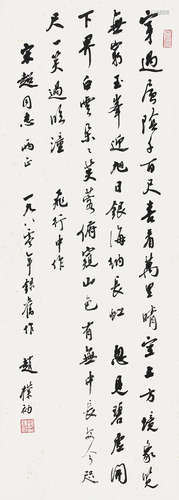 穿過層陰千百尺喜看萬里晴空上方境象覺
無窮玉峯迎旭日銀海納長虹 忽見碧虛開
下界白雲朵朵芙蓉俯窺山色有無中長安今咫
尺一笑過臨潼 飛行中作
宋超同志両正
一九八〇年錄舊作 趙樸初